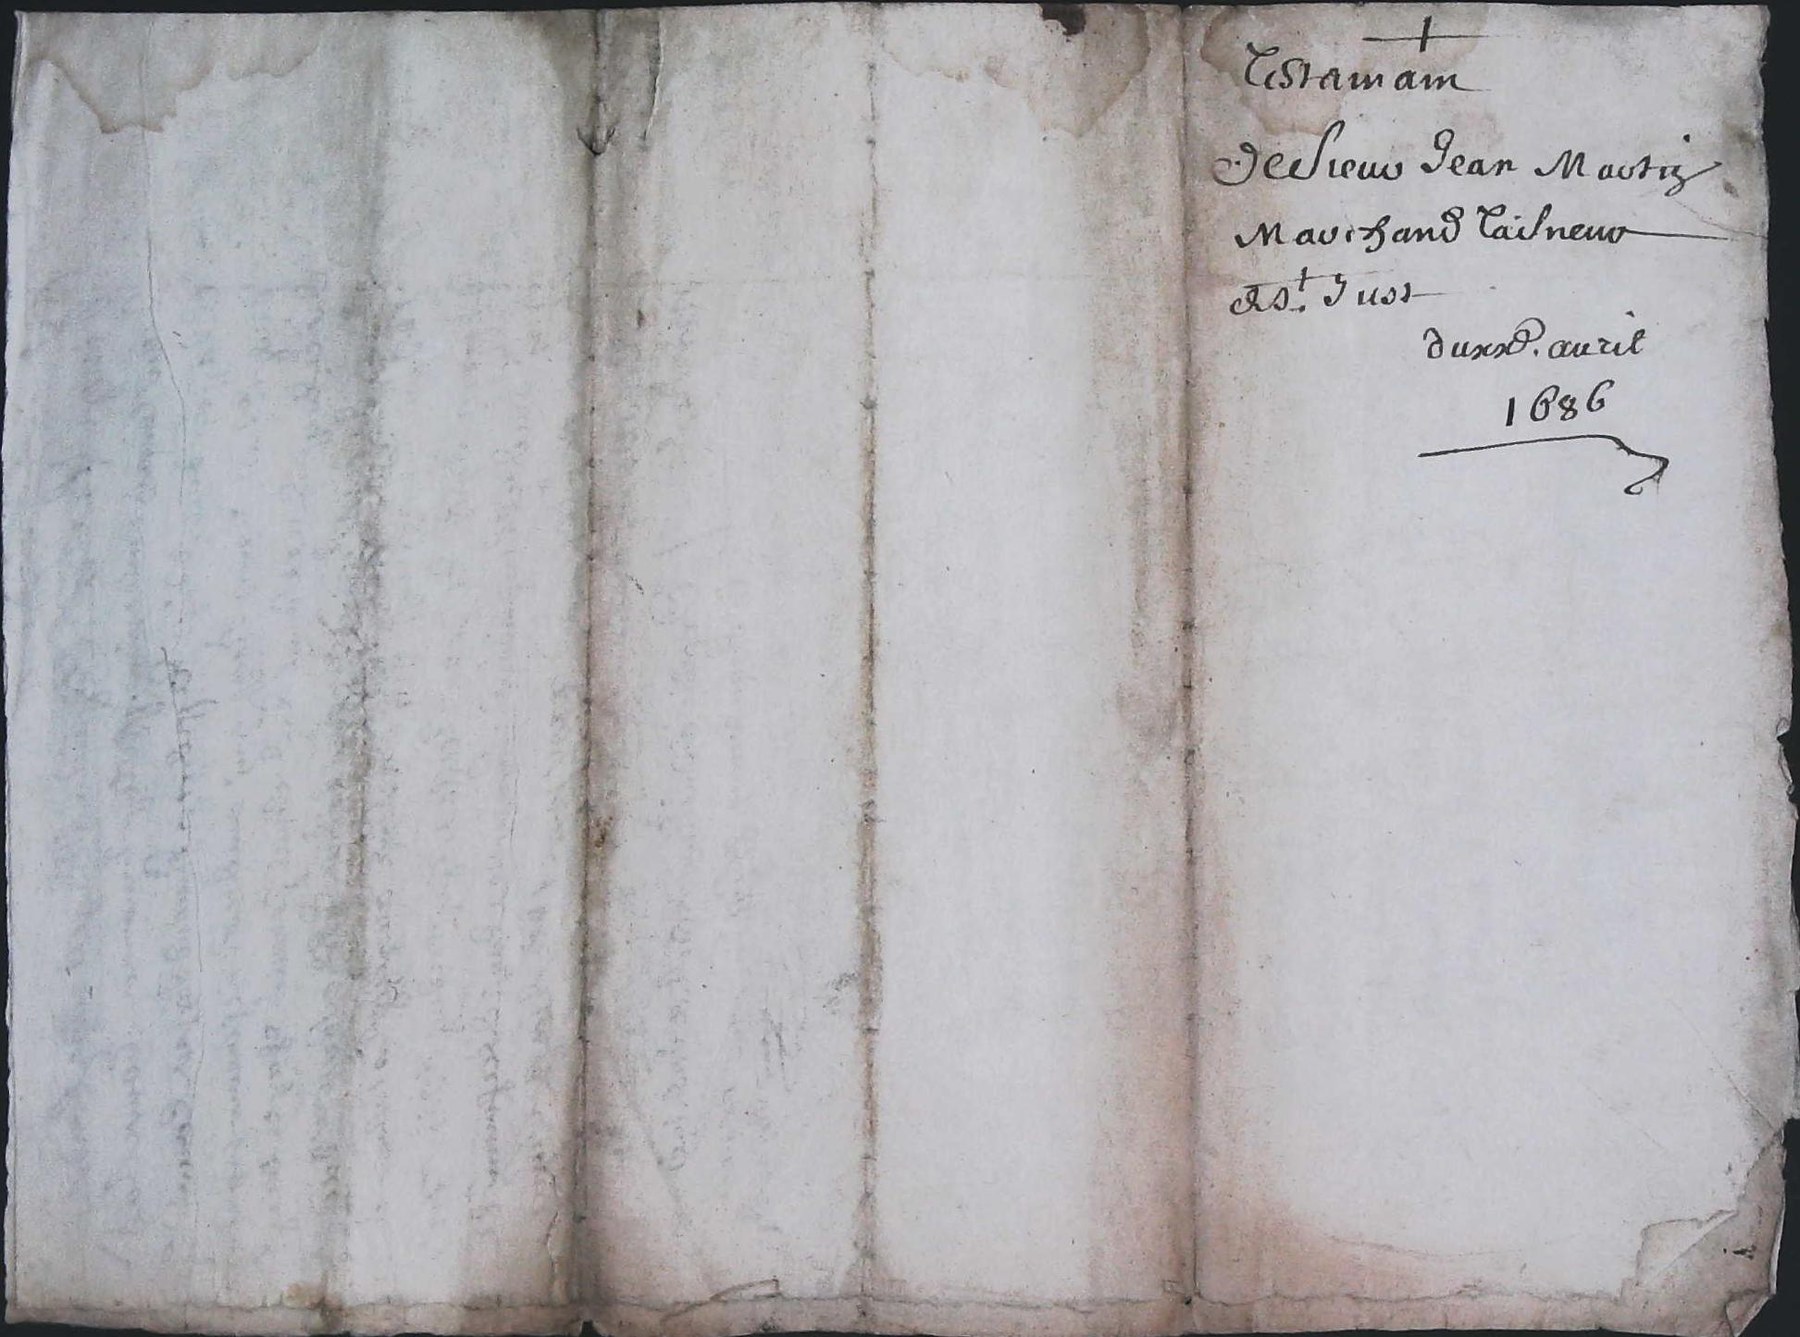 Testamam
de sieur Jean Martin
Marchand taisneur
de St. Just
du xxe. auril
1686